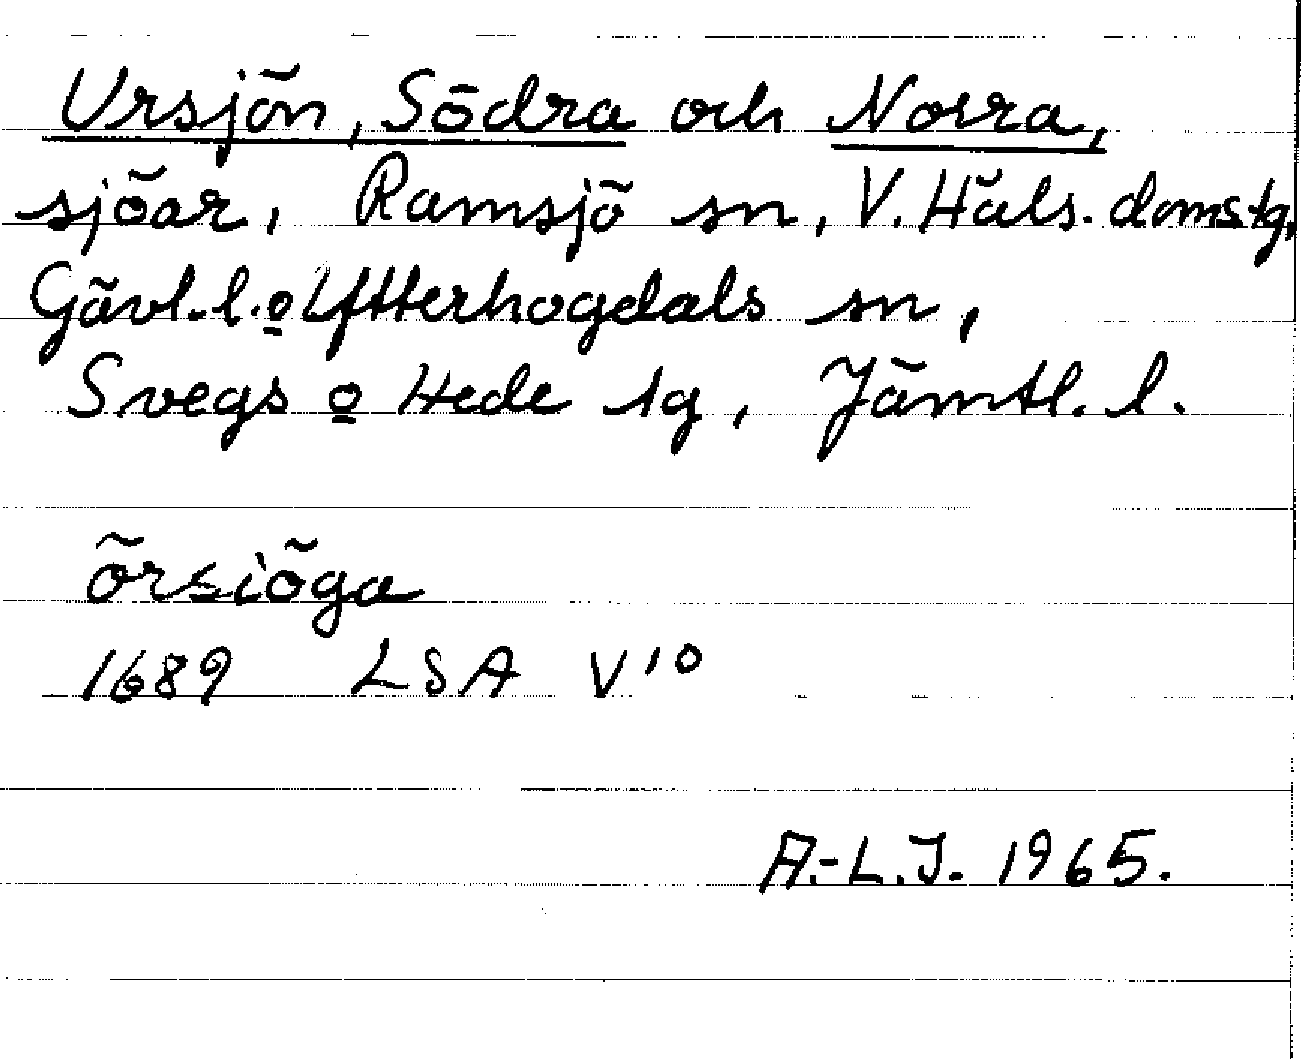 Ursjön, Södra och Norra,
sjöar, Ramsjö sn, V. Häls. domstg,
Gävl. l. o Ytterhogdals sn,
Svegs o Hede tg, Jämtl. l.
örsiöga
1689 LSA V10
A.-L.J. 1965.